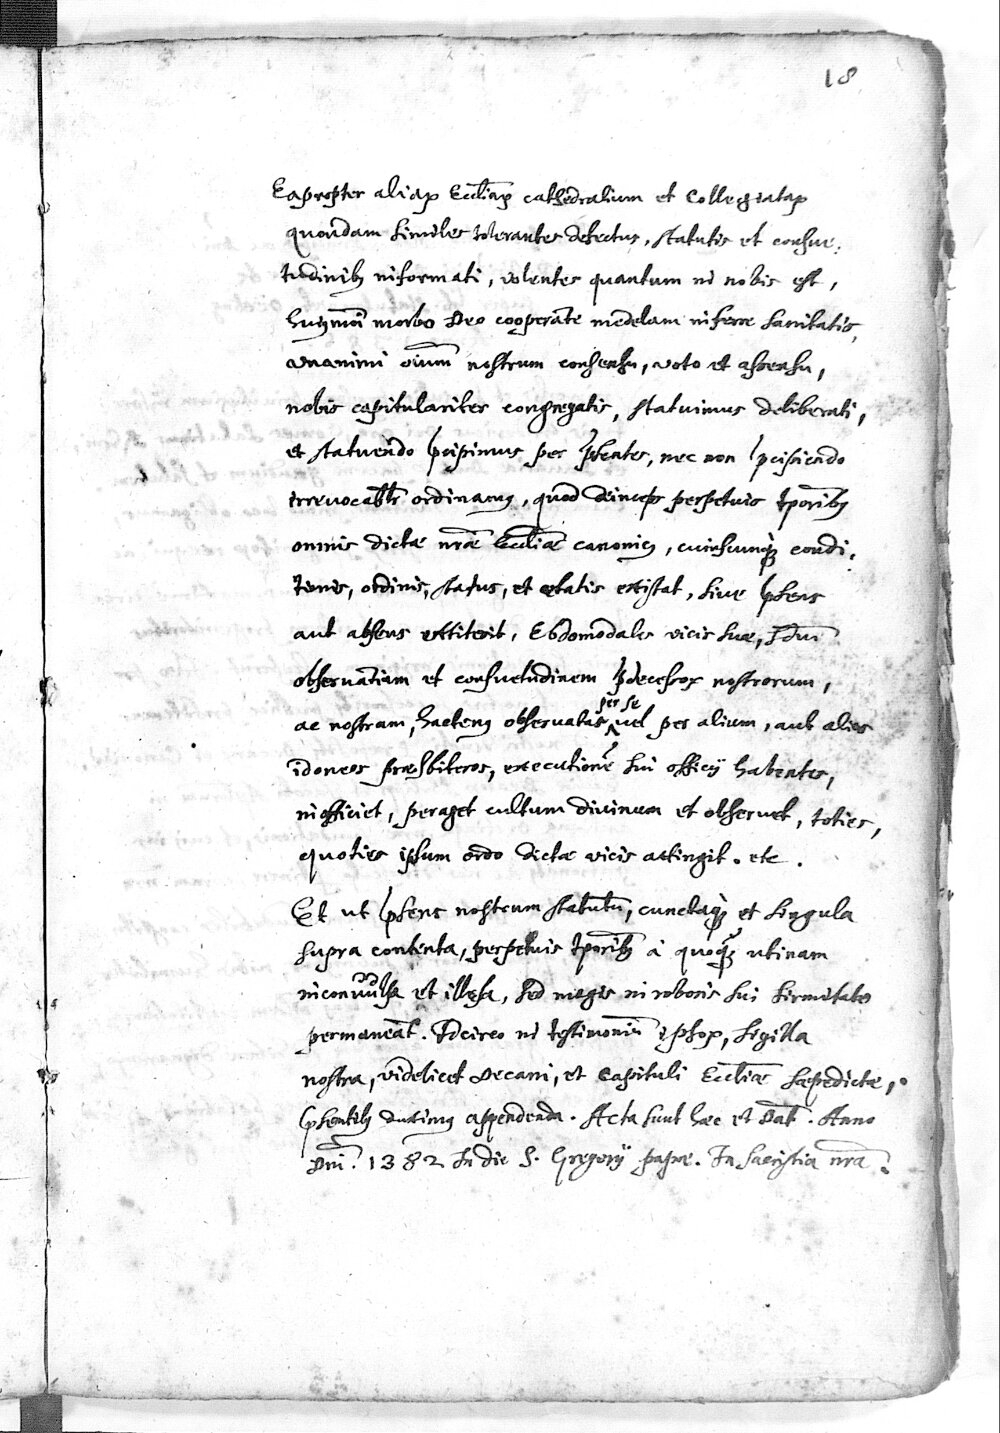 18
Eapropter aliaꝝ Eccliaꝝ cathedralium et Collegiataꝝ
quondam similes tolerantes defectus, statutis et consue:
tudinibꝫ informati, volentes quantum in nobis est,
huiꝰmōi morbo Deo cooperāte medelam inferre sanitatis,
vnanimi oīum nostrum consensu, voto et assensu,
nobis capitulariter congregatis, statuimus deliberati,
et statuendo pcipimus per pn̄tes, nec non pcipiendo
irreuocabłr ordinamꝰ, quod deinceps perpetuis tpōribꝫ
omnis dictæ nræ Eccliæ canonicꝰ, cuiuscunqꝫ condi:
tionis, ordinis, status, et ætatis existat, siue pn̄sens
aut absens extiterit, Ebdomodales vicis suæ, scdm̄
obseruātiam et consuetudinem pdecessoꝝ nostrorum,
ac nostram, hactenꝰ obseruatas per se vel per alium, aut alios
idoneos præsbiteros, executionē sui officij habentes,
inofficiet, peraget cultum diuinum et obseruet, toties,
quoties ipsum ordo dictæ vicis attingit. etc.
Et ut pn̄sens nostrum statutū, cunctaqꝫ et singula
supra contenta, perpetuis tpōribꝫ à quoqꝫ utinam
inconuulsa et illesa, sed magis in roboris sui firmitate
permaneāt. Idcirco in testimoniū ipsoꝝ, sigilla
nostra, videlicet Decani, et Capituli Eccliæ sæpedictæ,
pn̄sentibꝫ duximꝰ appendenda. Acta sunt hæc et Dat̄. Anno
Dnī. 1382 In die S. Gregorij papæ. In sacristia nrā.